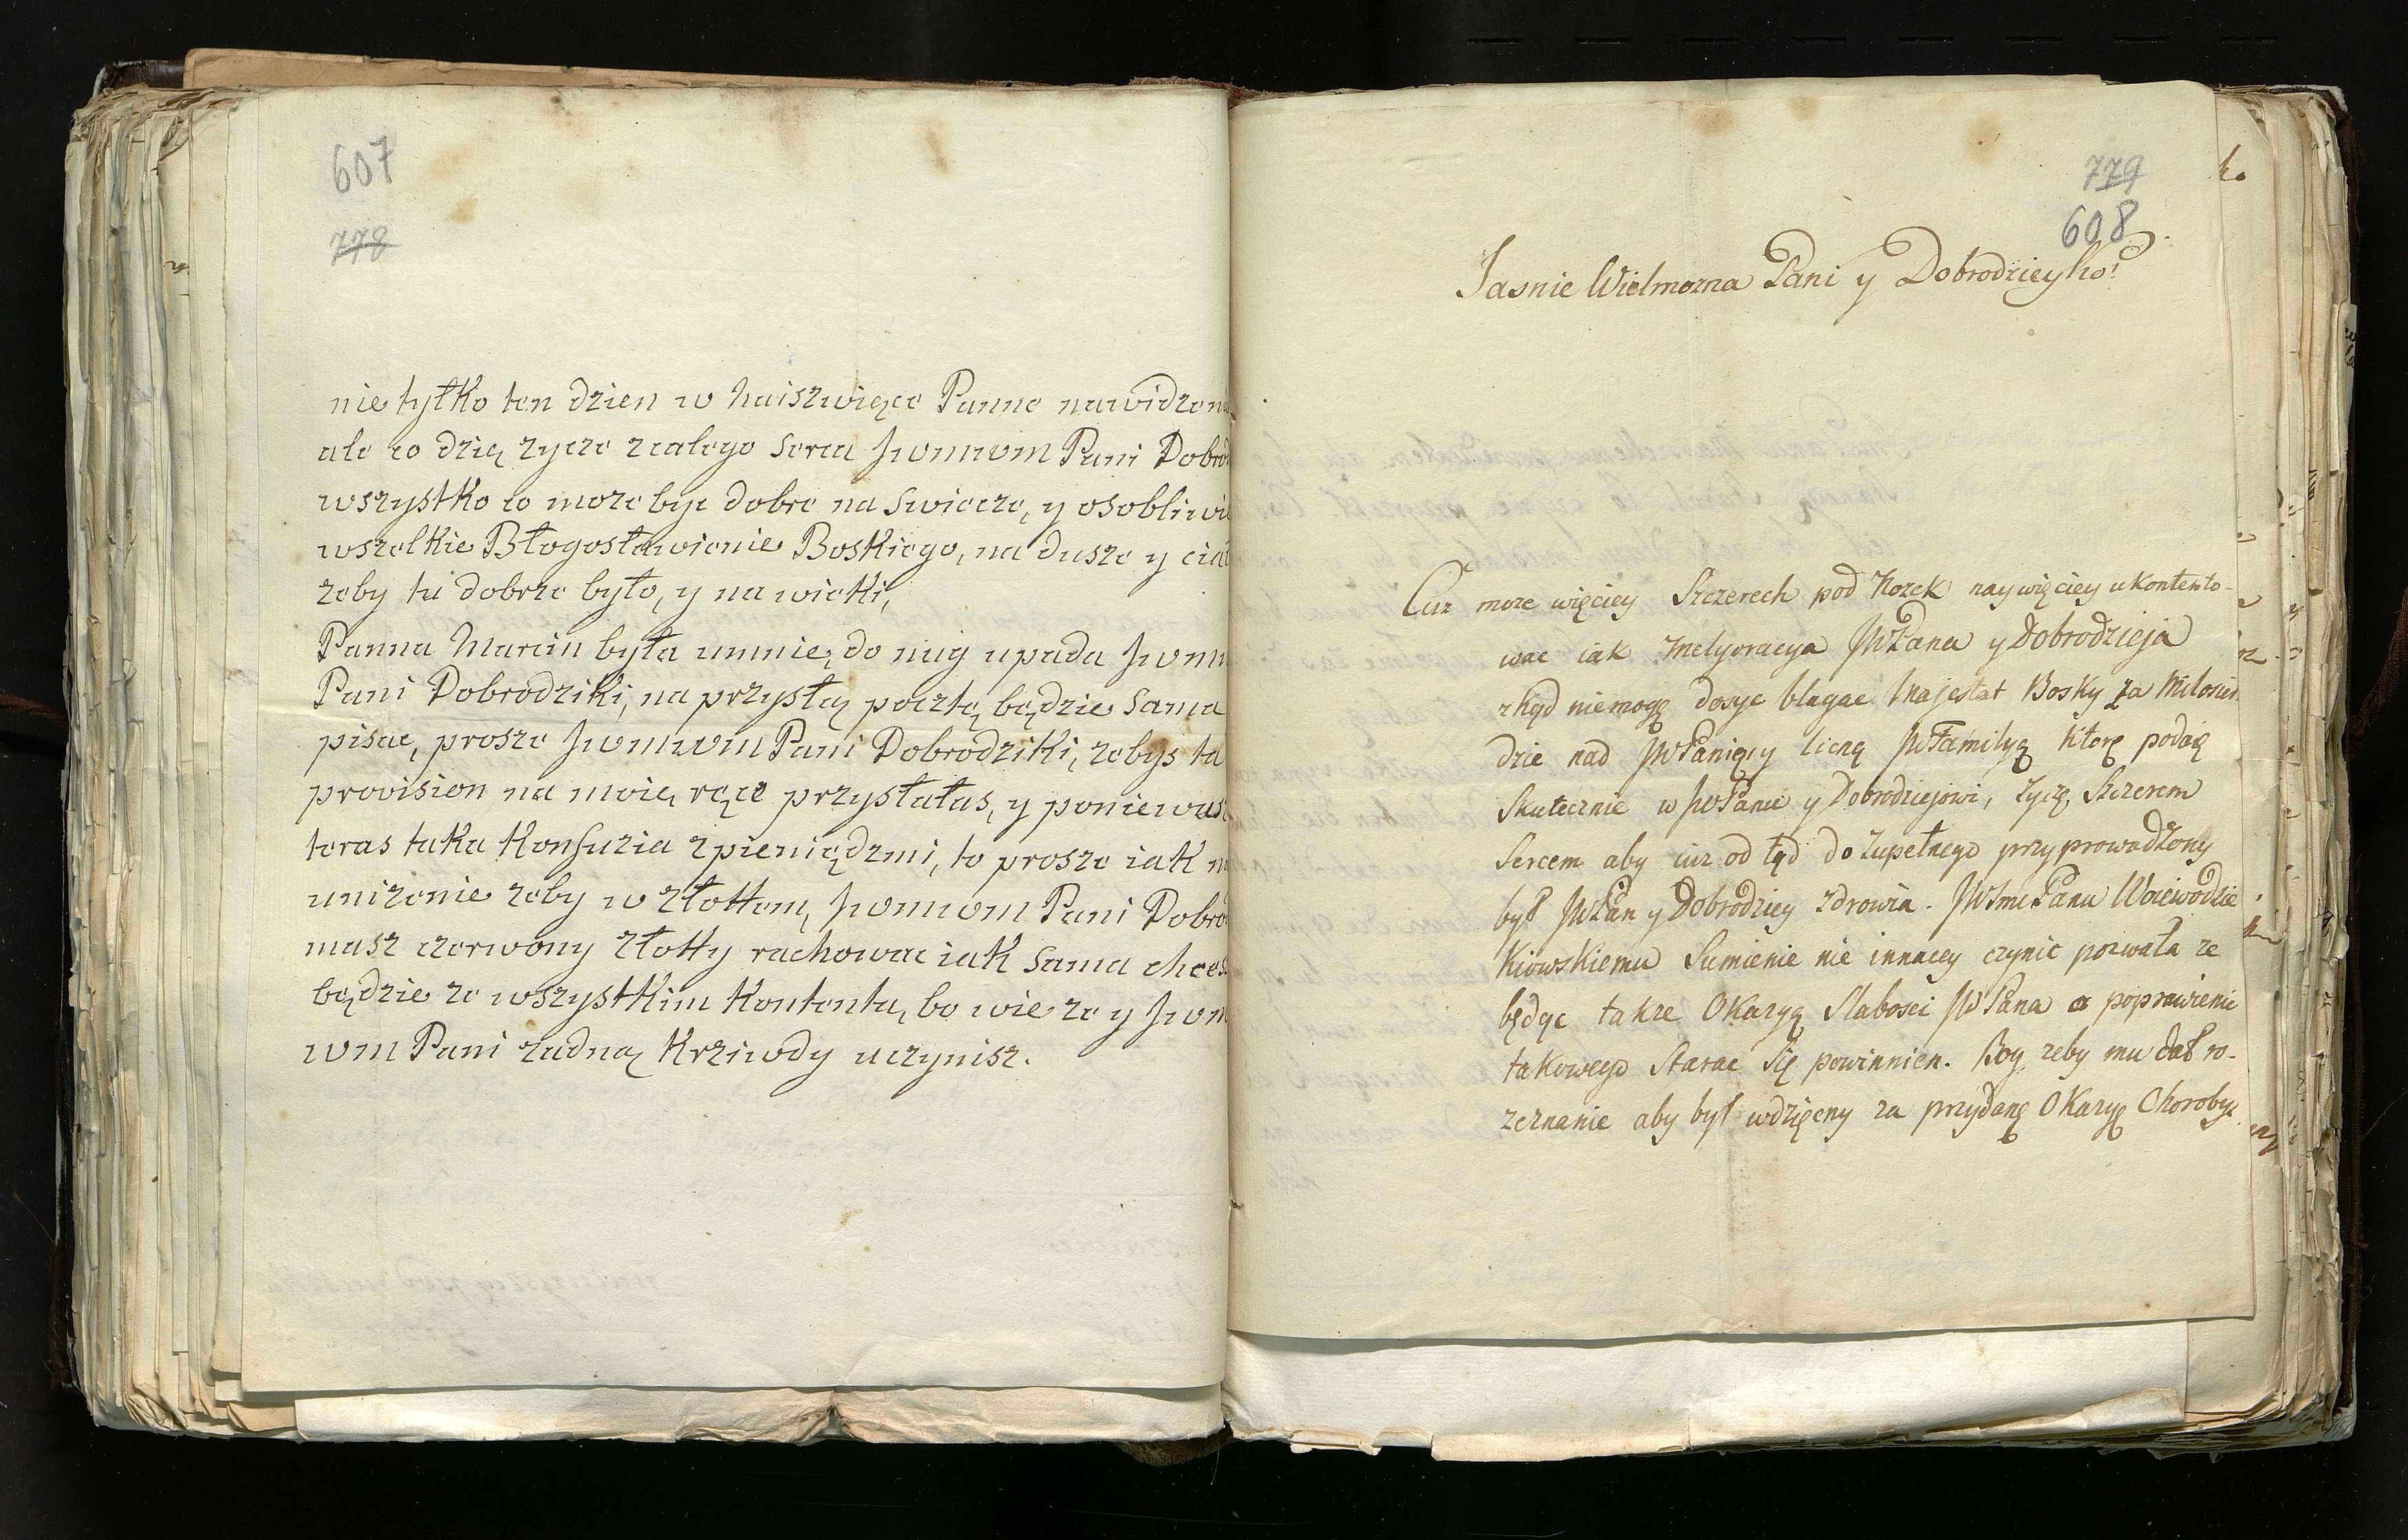 607
778
nie tyłko ten dzien w naiszwięce Panne nawidzen
ale co dzię zycze zcałego serca Jwmwm Pani Dobrod
wszystko co moze byc dobre na swiecze, y osobliwi
wszelkie Błogosławienie Boskiego, na dusze y ciał
zeby tu dobrze było, y na wieki,
Panna Marcin była umnie, do nug upada Jwm
Pani Dobrodziki, na przysłą pocztą będzie sama
pisac, prosze Jwmwm Pani Dobrodziki, zebys ta
provision na moię ręce przysłałas, y poniewas
teras taka Konfuzia zpieniędzmi, to prosze iak n
unizenie zeby w złottem, Jwmwm Pani Dobrod
masz czerwony złotty rachowac iak sama chces
będzie ze wszystkim Kontenta, bo wie ze y Jwm
wm Pani zadną Krziwdy uczynisz.
779
608
Jasnie Wielmozna Pani y Dobrodzieyko!
Cuz moze więciey Szczerech pod Nozek naywięciey ukontento-
wac iak melyoracya JWPana y Dobrodzieja
zkąd niemogę dosyc błagac Majestat Bosky za Miłosier
dzie nad JWPanią y liczną JWFamilyą ktorę podaię
Skutecznie w JWPanu y Dobrodziejowi, zyczę, Szczerem
Sercem aby iuz od tąd do zupełnego przyprowadzony
był JWPan y Dobrodziey zdrowia. JWImc Panu Woiewodzie
Kiowskiemu Sumienie nie innaczey czynic pozwala ze
będąc takze Okazyą Słabosci JWPana a poprawienie
takowego Starac się powinnien. Bog zeby mu dał ro-
zeznanie aby był wdzięczny za przydaną Okazyę Choroby.